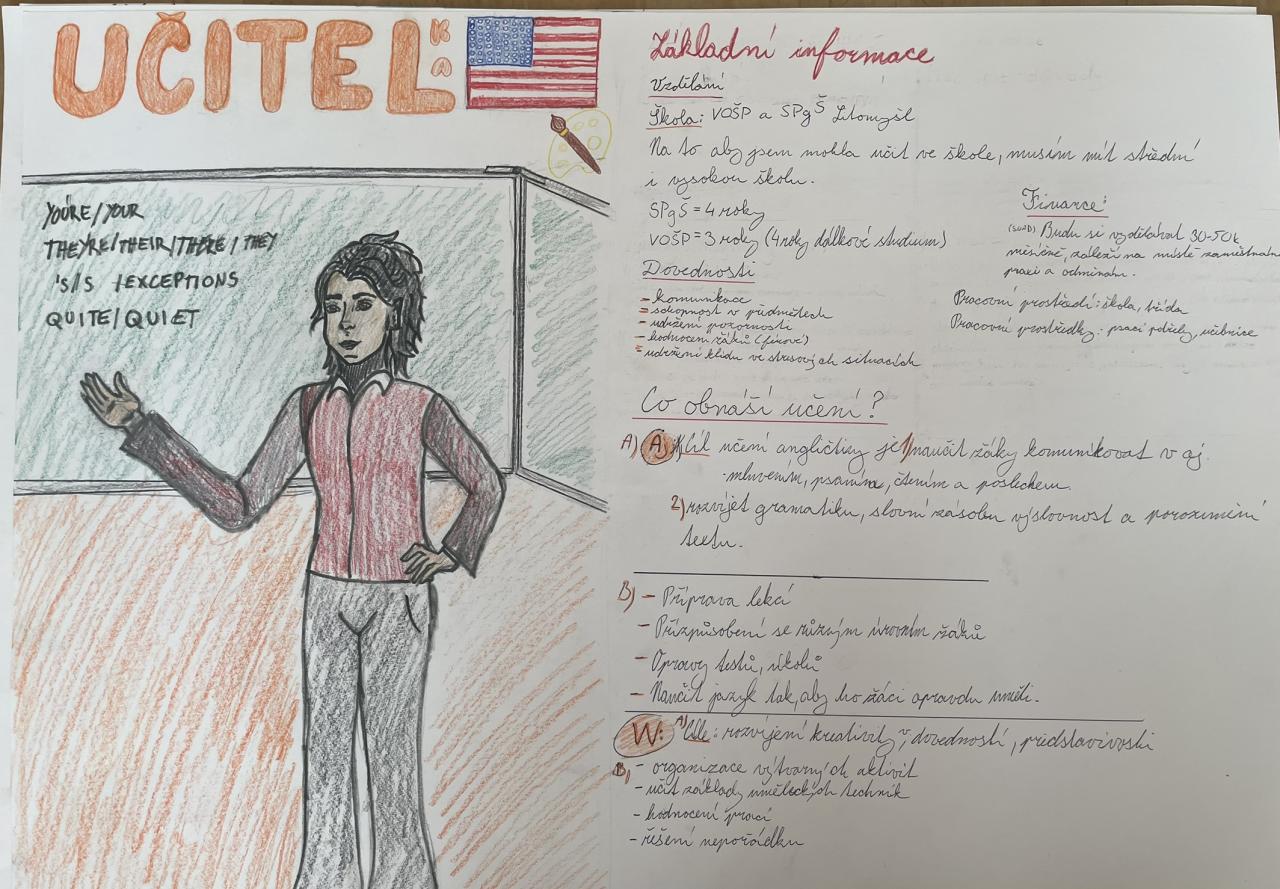 UČITEL KA
YOU'RE/YOUR
THEY'RE/THEIR/THERE/THEY
'S/S /EXCEPTIONS
QUITE/QUIET
Základní informace
Vzdělání
Škola: VOŠP a SPgŠ Litomyšl
Na to aby jsem mohla učit ve škole, musím mít střední
i vysokou školu.
SPgŠ = 4 roky
VOŠP = 3 roky (4 roky dálkové studium)
Dovednosti
- komunikace
- schopnost v předmětech
- udržení pozornosti
- hodnocení žáků (férové)
- udržení klidu ve stresových situacích
Finance:
Budu si vydělávat 30-50k
měsíčně, záleží na místě zaměstnání
praxi a odměnám.
Pracovní prostředí: škola, třída
Pracovní prostředky: psací potřeby, učebnice
Co obnáší učení?
A) A: Cíl učení angličtiny je 1) naučit žáky komunikovat v aj.
- mluvením, psaním, čtením a poslechem.
2) rozvíjet gramatiku, slovní zásobu výslovnost a porozumění
textu.
B) - Příprava lekcí
- Přizpůsobení se různým úrovním žáků
- Opravy testů, úkolů
- Naučit jazyk tak, aby ho žáci opravdu uměli.
W: A) Cíle: rozvíjení kreativity, dovedností, představivosti
B) - organizace výtvarných aktivit
- učit základy uměleckých technik
- hodnocení prací
- řešení nepořádku